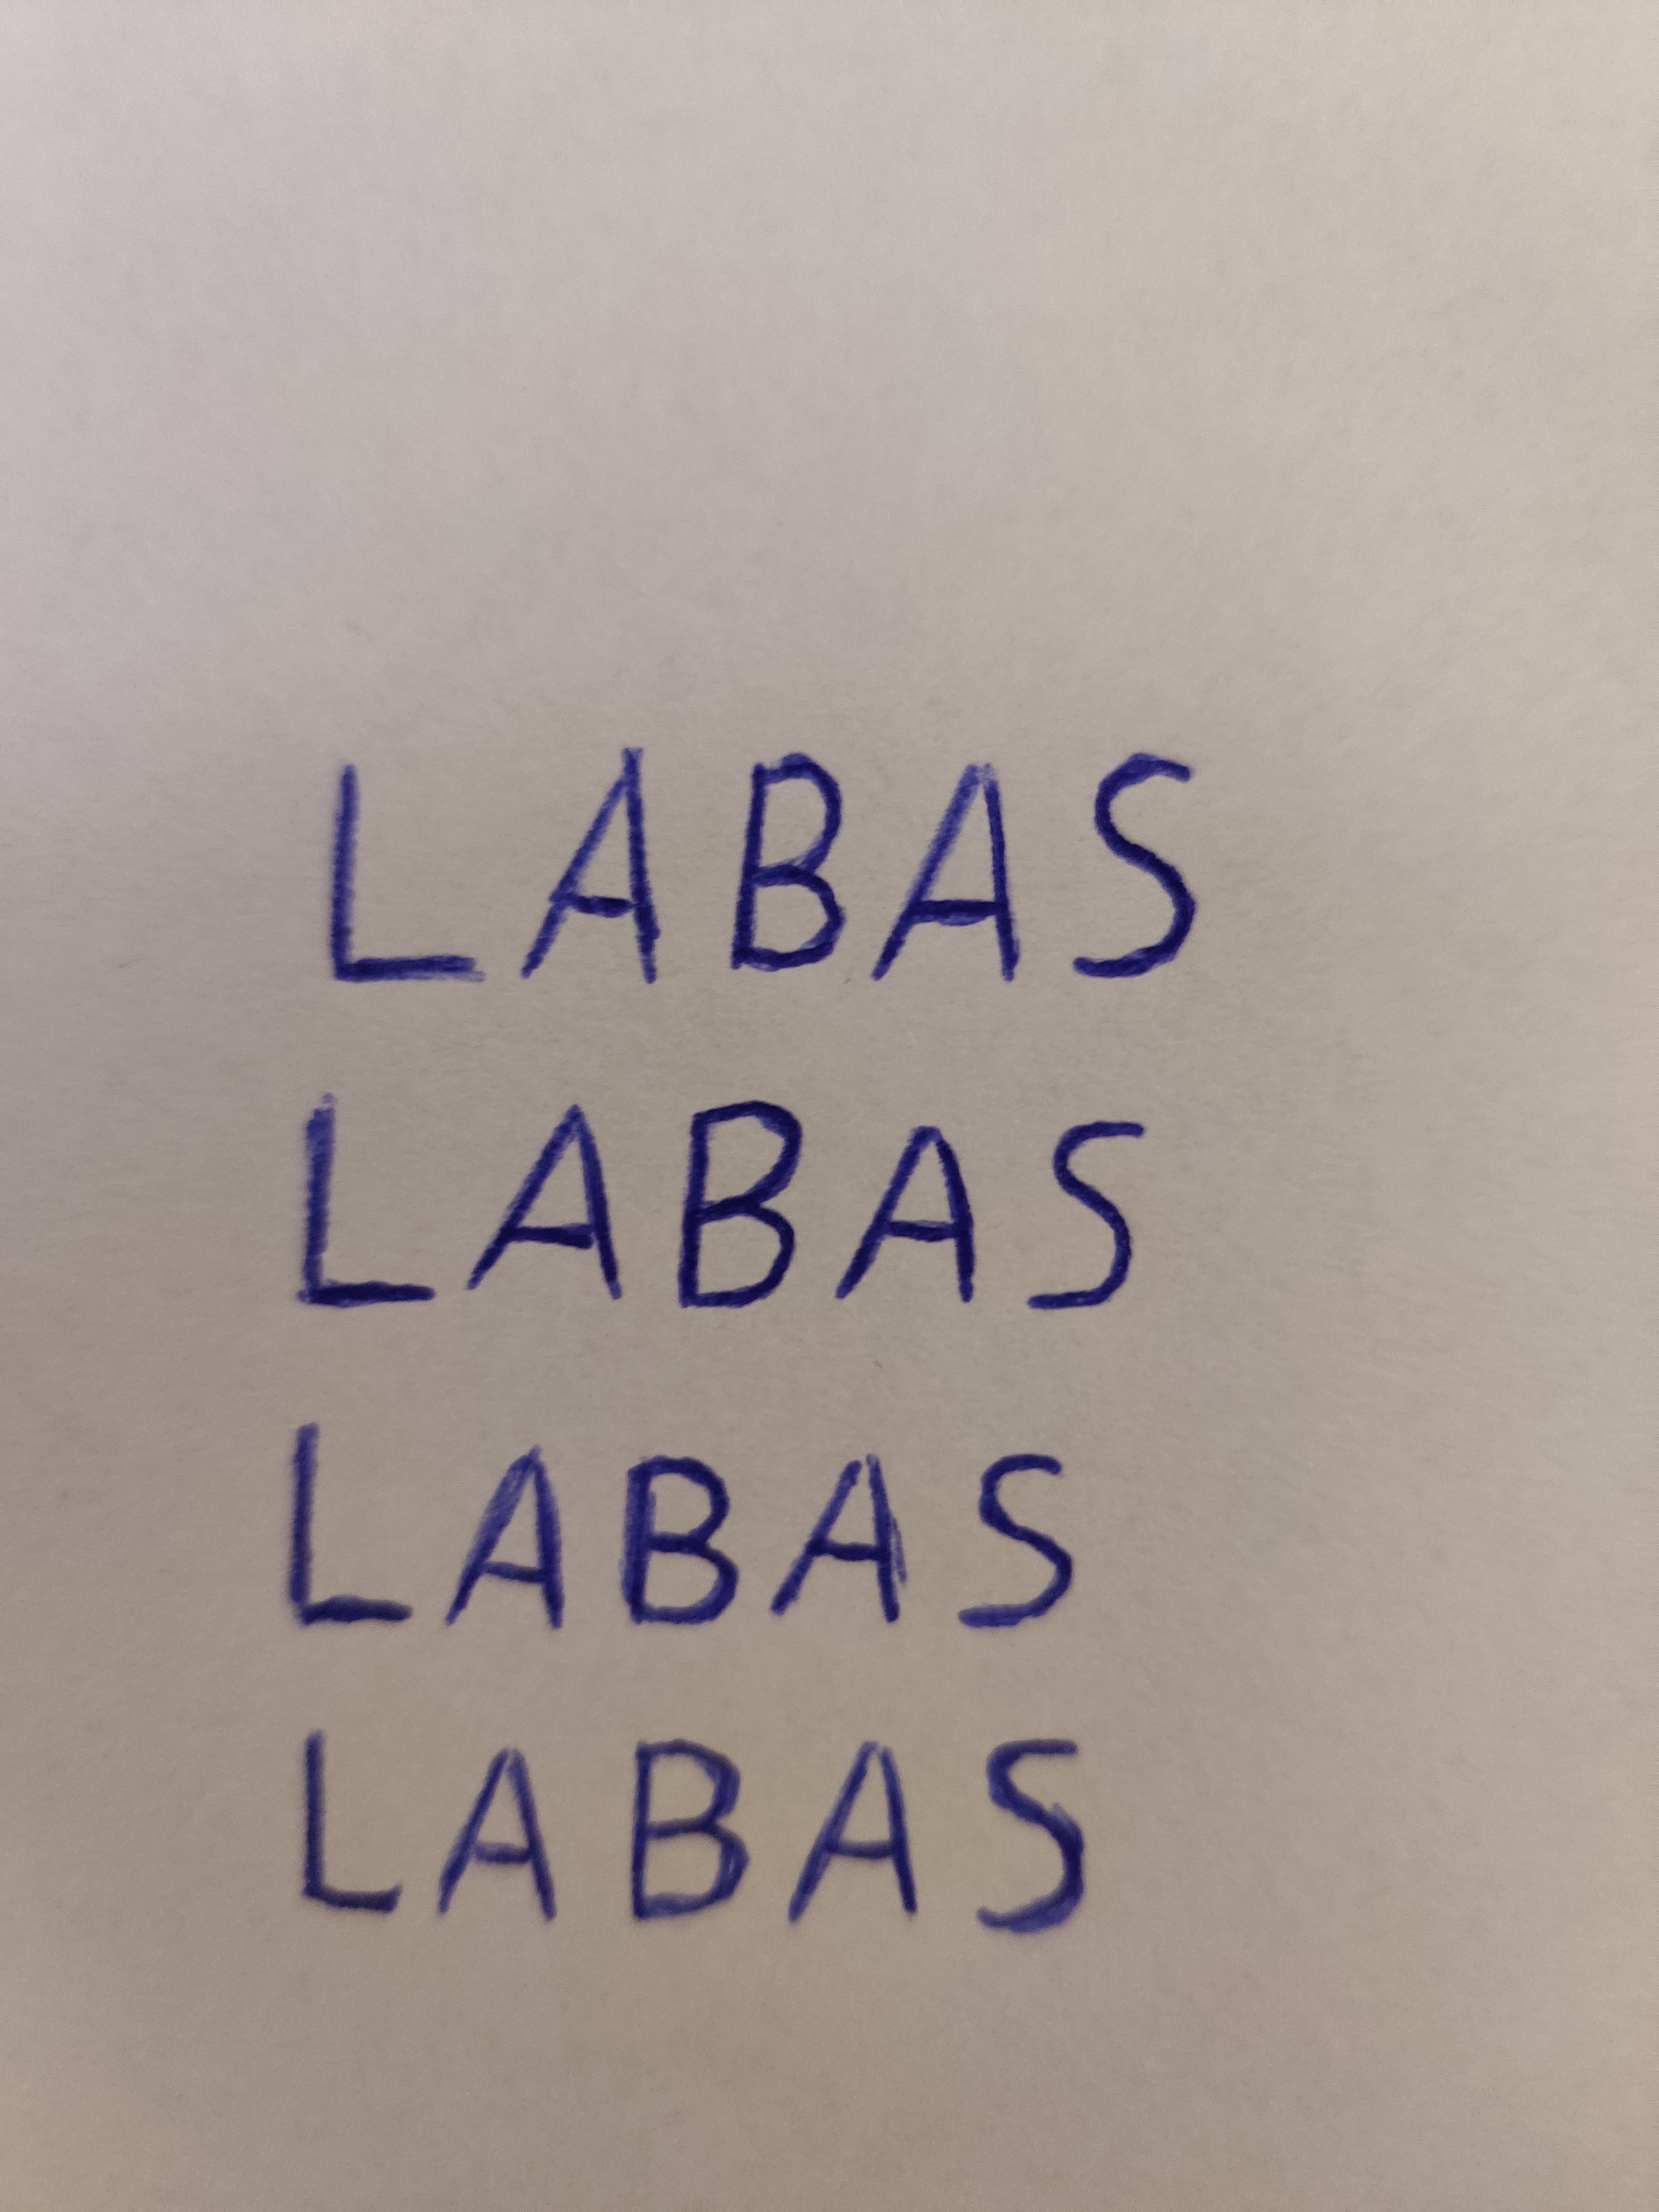 LABAS
LABAS
LABAS
LABAS